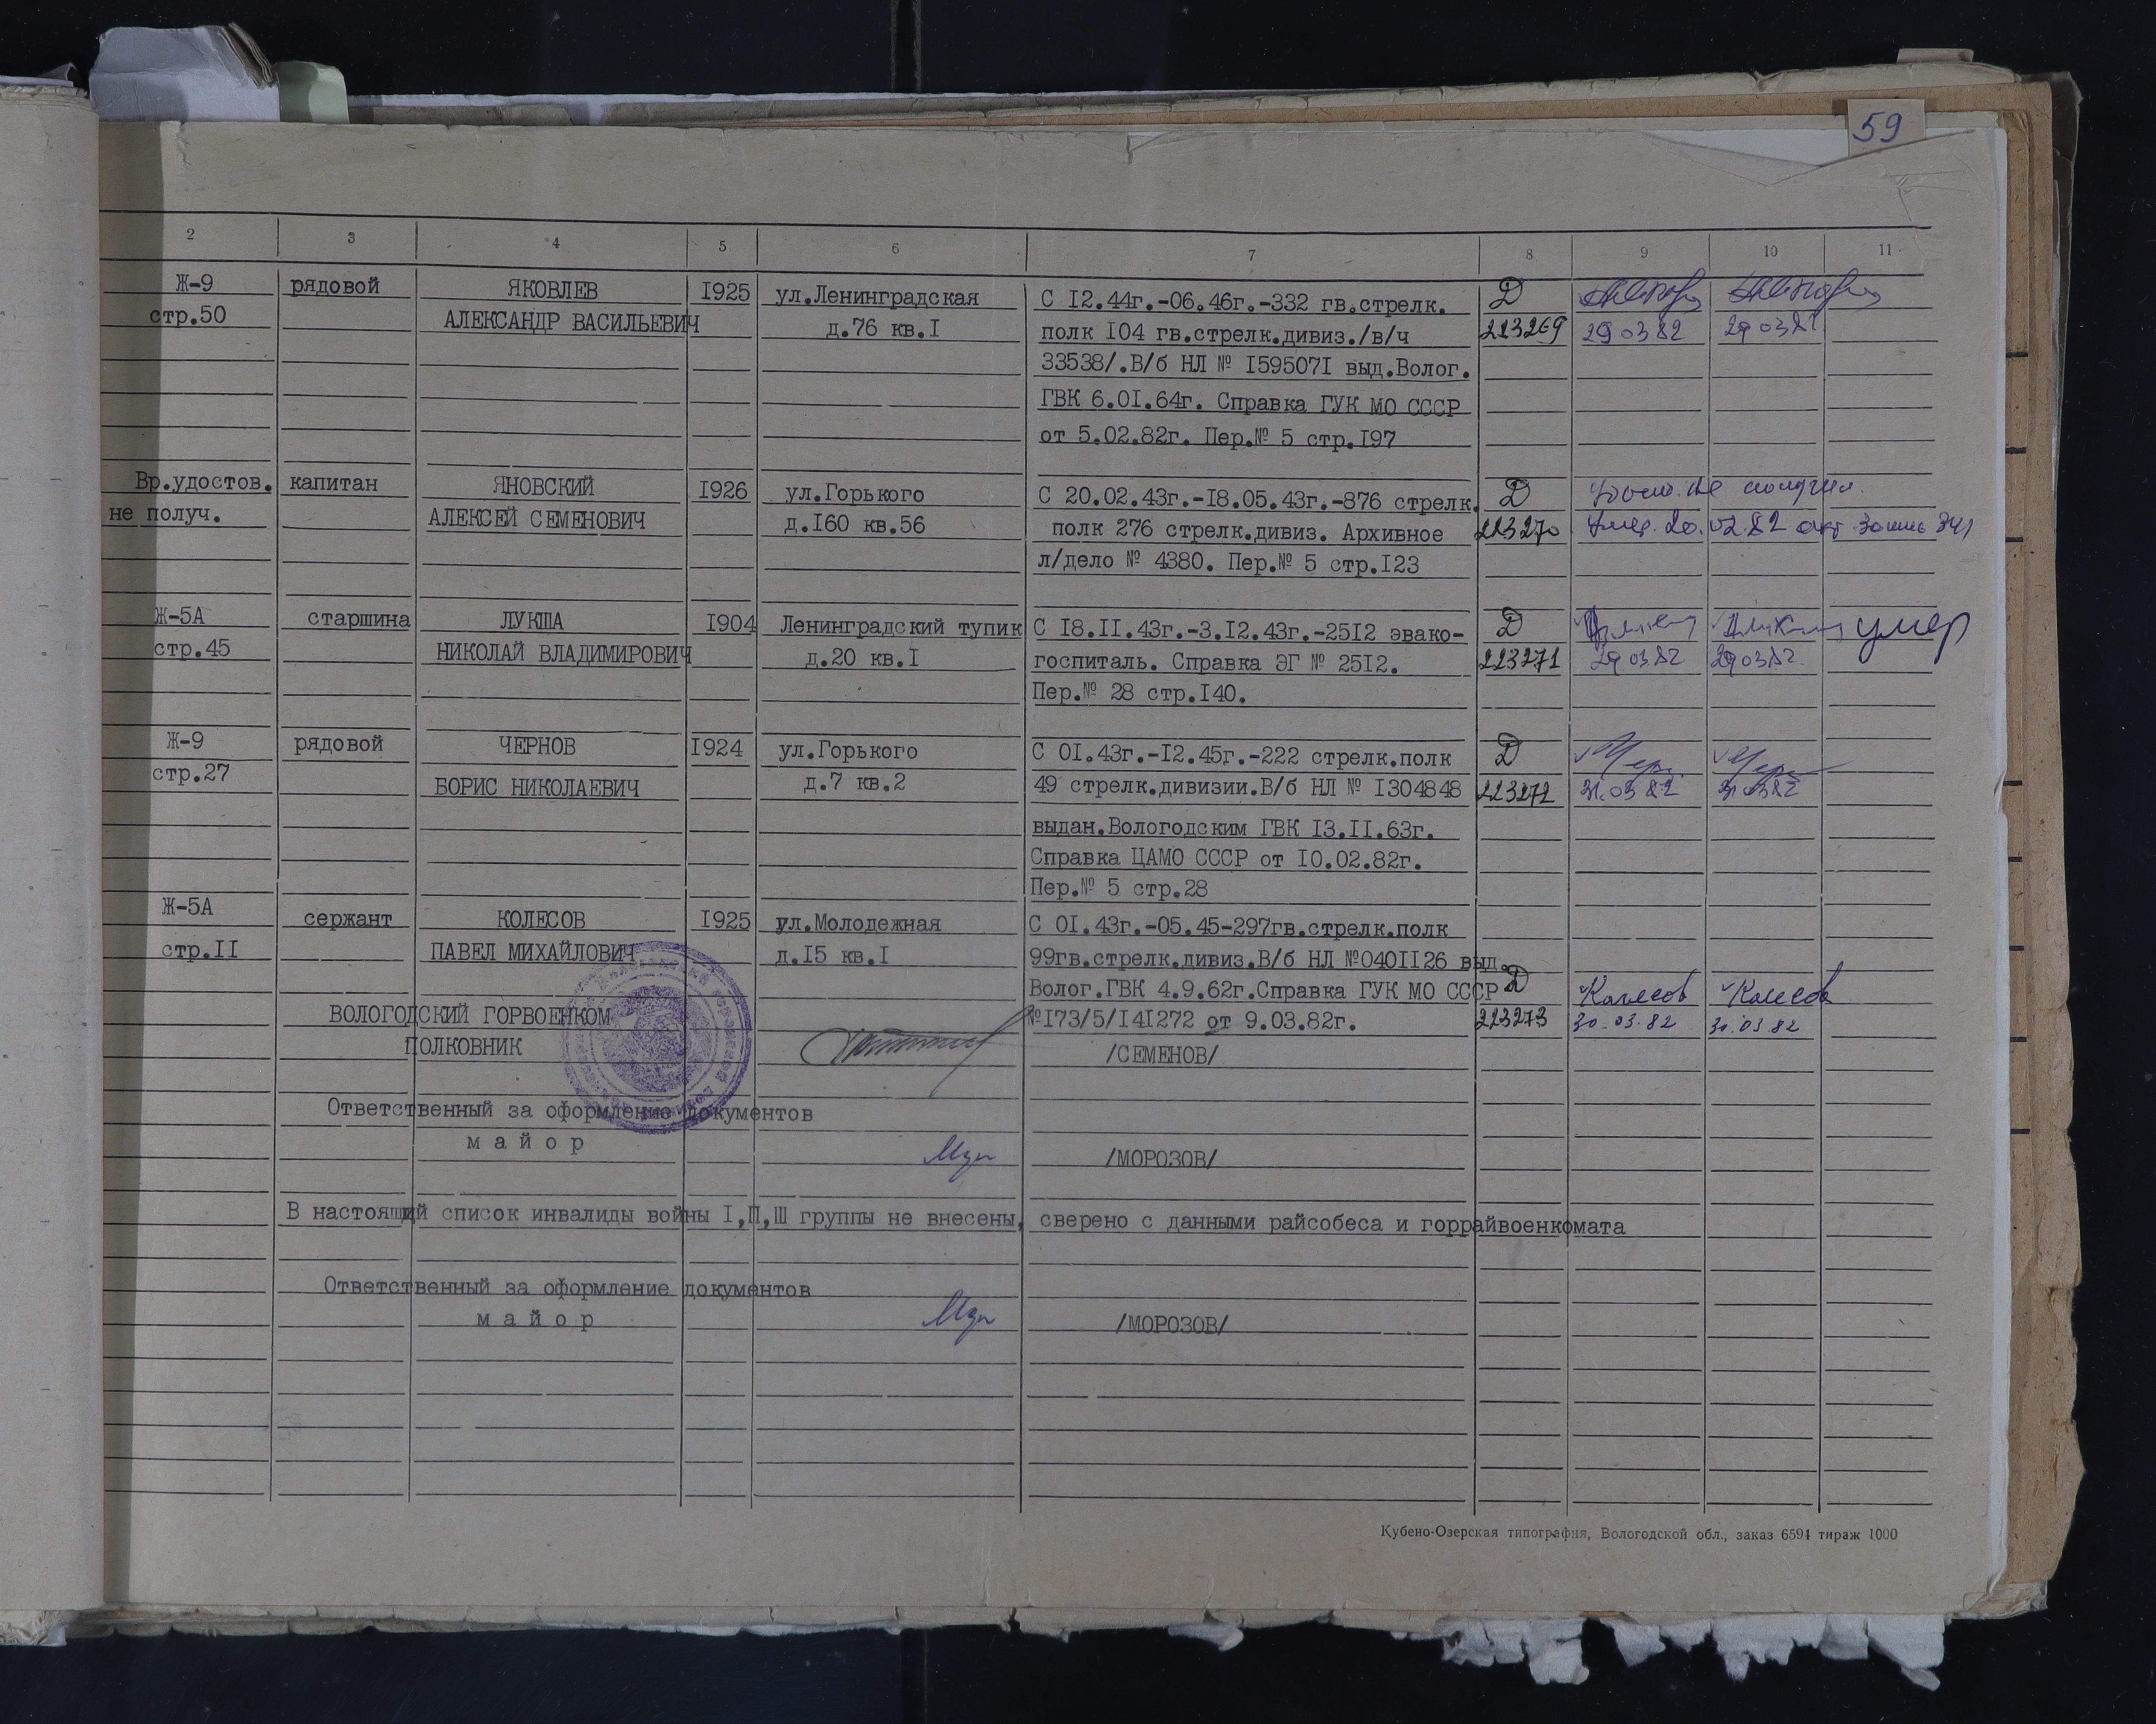 59
2 3 4 5 6 7 8 9 10 11
Ж-9 рядовой ЯКОВЛЕВ 1925 ул.Ленинградская С 12.44г.-06.46г.-332 гв.стрелк. Д
стр.50 АЛЕКСАНДР ВАСИЛЬЕВИЧ д.76 кв.1 полк 104 гв.стрелк.дивиз./в/ч 223269 29 03 82 29 03 82
33538/.В/б НЛ № 1595071 выд.Волог.
ГВК 6.01.64г. Справка ГУК МО СССР
от 5.02.82г. Пер.№ 5 стр.197
Вр.удостов. капитан ЯНОВСКИЙ 1926 ул.Горького С 20.02.43г.-18.05.43г.-876 стрелк. Д Удост. не получил.
не получ. АЛЕКСЕЙ СЕМЕНОВИЧ д.160 кв.56 полк 276 стрелк.дивиз. Архивное 223270 Умер. 20.02.82 акт
л/дело № 4380. Пер.№ 5 стр.123
Ж-5А старшина ЛУКША 1904 Ленинградский тупик С 18.11.43г.-3.12.43г.-2512 эвако- Д умер
стр.45 НИКОЛАЙ ВЛАДИМИРОВИЧ д.20 кв.1 госпиталь. Справка ЭГ № 2512. 223271 29 03 82 29 03 82
Пер.№ 28 стр.140.
Ж-9 рядовой ЧЕРНОВ 1924 ул.Горького С 01.43г.-12.45г.-222 стрелк.полк Д
стр.27 БОРИС НИКОЛАЕВИЧ д.7 кв.2 49 стрелк.дивизии.В/б НЛ № 1304848 223272 31.03 82 31.03 82
выдан.Вологодским ГВК 13.11.63г.
Справка ЦАМО СССР от 10.02.82г.
Пер.№ 5 стр.28
Ж-5А сержант КОЛЕСОВ 1925 ул.Молодежная С 01.43г.-05.45-297гв.стрелк.полк
стр.11 ПАВЕЛ МИХАЙЛОВИЧ д.15 кв.1 99гв.стрелк.дивиз.В/б НЛ №0401126 выд.
Волог.ГВК 4.9.62г.Справка ГУК МО СССР Д Колесов Колесов
ВОЛОГОДСКИЙ ГОРВОЕНКОМ №173/5/141272 от 9.03.82г. 223273 30.03.82 30.03.82
ПОЛКОВНИК /СЕМЕНОВ/
Ответственный за оформление документов
майор /МОРОЗОВ/
В настоящий список инвалиды войны I,II,III группы не внесены, сверено с данными райсобеса и горрайвоенкомата
Ответственный за оформление документов
майор /МОРОЗОВ/
Кубено-Озерская типография, Вологодской обл., заказ 6594 тираж 1000